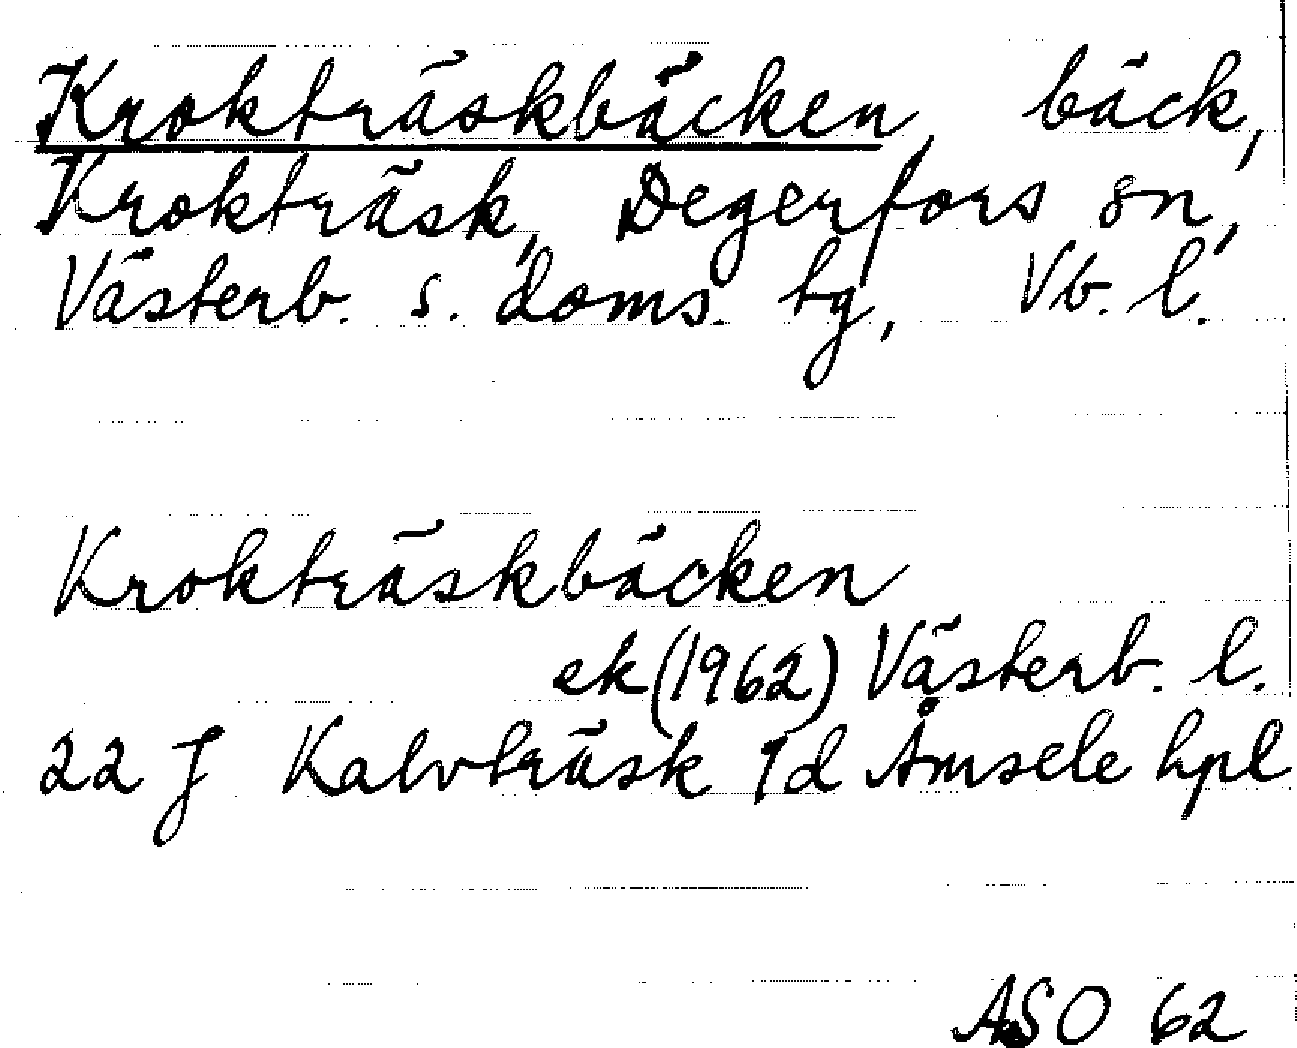 Krokträskbäcken, bäck,
Krokträsk, Degerfors sn,
Västerb. s. doms. tg, Vb. l.
Krokträskbäcken
ek (1962) Västerb. l.
22 J Kalvträsk 1d Åmsele hpl
ASO 62